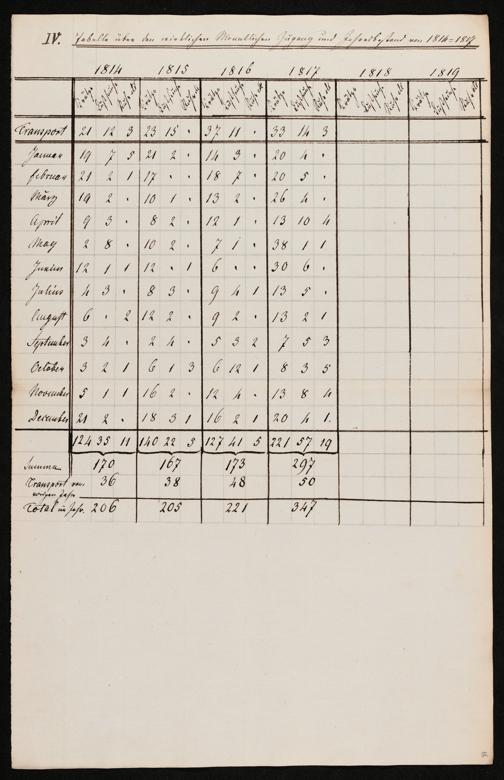 IV. Tabelle über den wirklichen Monatlichen Zugang und Jahresbestand von 1814=1817
1814 1815 1816 1817 1818 1819
Transport 21 12 3 23 15 " 37 11 " 33 14 3
Januar 19 7 5 21 2 " 14 3 " 20 4 "
Februar 21 2 1 17 " " 18 7 " 20 5 "
März 19 2 " 10 1 " 13 2 " 26 4 "
April 9 3 " 8 2 " 12 1 " 13 10 4
May 2 8 " 10 2 " 7 1 " 38 1 1
Junius 12 1 1 12 " 1 6 " " 30 6 "
Julius 4 3 " 8 3 " 9 4 1 13 5 "
August 6 " 2 12 2 " 9 2 " 13 2 1
September 3 4 " 2 4 " 5 3 2 7 5 3
October 3 2 1 6 1 3 6 12 1 8 3 5
November 5 1 1 16 2 " 12 4 " 13 8 4
December 21 2 " 18 3 1 16 2 1 20 4 1.
124 35 11 140 22 5 127 41 5 221 57 19
Summa 170 167 173 297
Transport vom 36 38 48 50
vorigen Jahr
Total im Jahr. 206 205 221 347